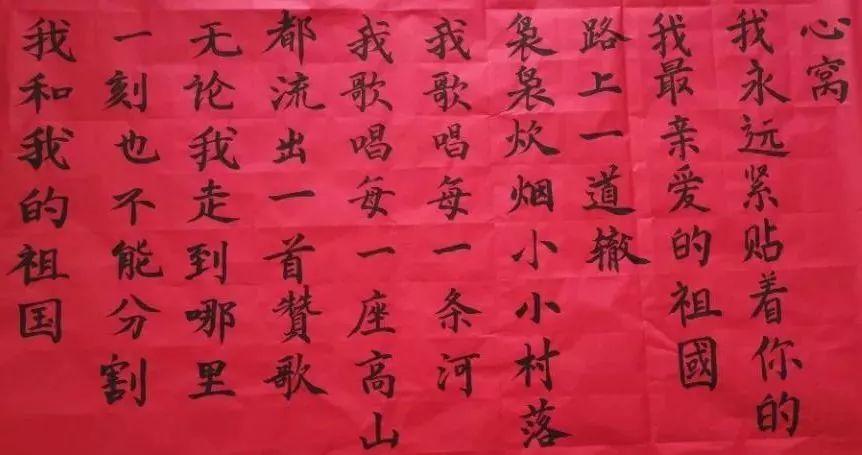 我和我的祖国
一刻也不能分割
无论我走到哪里
都流出一首赞歌
我歌唱每一座高山
我歌唱每一条河
袅袅炊烟小小村落
路上一道辙
我最亲爱的祖國
我永远紧贴着你的
心窝